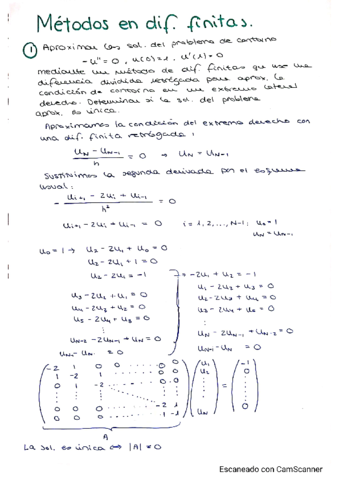 Métodos en dif. finitas.
① Aproximar las sol. del problema de contorno
-u'' = 0 , u(0)=1 , u'(1)=0
mediante un método de dif finitas que use una
diferencia dividida retrógada para aprox. la
condición de contorno en un extremo lateral
derecho. Determinar si la sol. del problema
aprox. es única.
Aproximamos la condición del extremo derecho con
una dif. finita retrógada:
(u_N - u_{N-1})/h = 0 ⇒ u_N = u_{N-1}
Sustituimos la segunda derivada por el esquema
usual:
- (u_{i+1} - 2u_i + u_{i-1})/h² = 0
u_{i+1} - 2u_i + u_{i-1} = 0 i = 1, 2, ..., N-1; u_0 = 1
u_N = u_{N-1}
u_0 = 1 → u_2 - 2u_1 + u_0 = 0
u_2 - 2u_1 + 1 = 0
u_2 - 2u_1 = -1
u_3 - 2u_2 + u_1 = 0
u_4 - 2u_3 + u_2 = 0
u_5 - 2u_4 + u_3 = 0
⋮
u_{N-2} - 2u_{N-1} + u_N = 0
u_{N-1} - u_N = 0
-2u_1 + u_2 = -1
u_1 - 2u_2 + u_3 = 0
u_2 - 2u_3 + u_4 = 0
u_3 - 2u_4 + u_5 = 0
⋮
u_N - 2u_{N-1} + u_{N-2} = 0
u_{N-1} - u_N = 0
-2 1 0 0 ... 0 0
1 -2 1 ... 0 0
0 1 -2 ... 0 0
⋮
0 0 0 ... -2 1
0 0 0 0 ... 1 -1
A
u_1
u_2
⋮
u_N
=
-1
0
⋮
0
La sol. es única ⟺ |A| ≠ 0
Escaneado con CamScanner